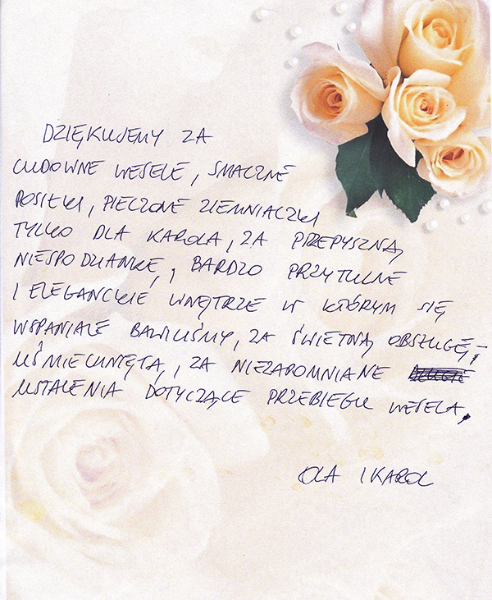 DZIĘKUJEMY ZA
CUDOWNE WESELE, SMACZNE
POSIŁKI, PIECZONE ZIEMNIACZKI
TYLKO DLA KAROLA, ZA PRZEPYSZNĄ
NIESPODZIANKĘ, BARDZO PRZYTULNE
I ELEGANCKIE WNĘTRZE W KTÓRYM SIĘ
WSPANIALE BAWILIŚMY, ZA ŚWIETNĄ OBSŁUGĘ,
UŚMIECHNIĘTĄ, ZA NIEZAPOMNIANE
USTALENIA DOTYCZĄCE PRZEBIEGU WESELA,
OLA I KAROL